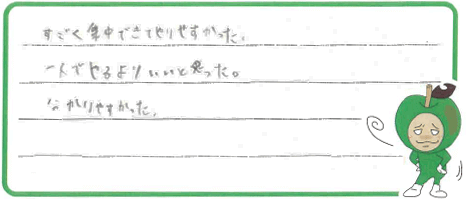 すごく集中できてやりやすかった。
一人でやるよりいいと思った。
分かりやすかった。